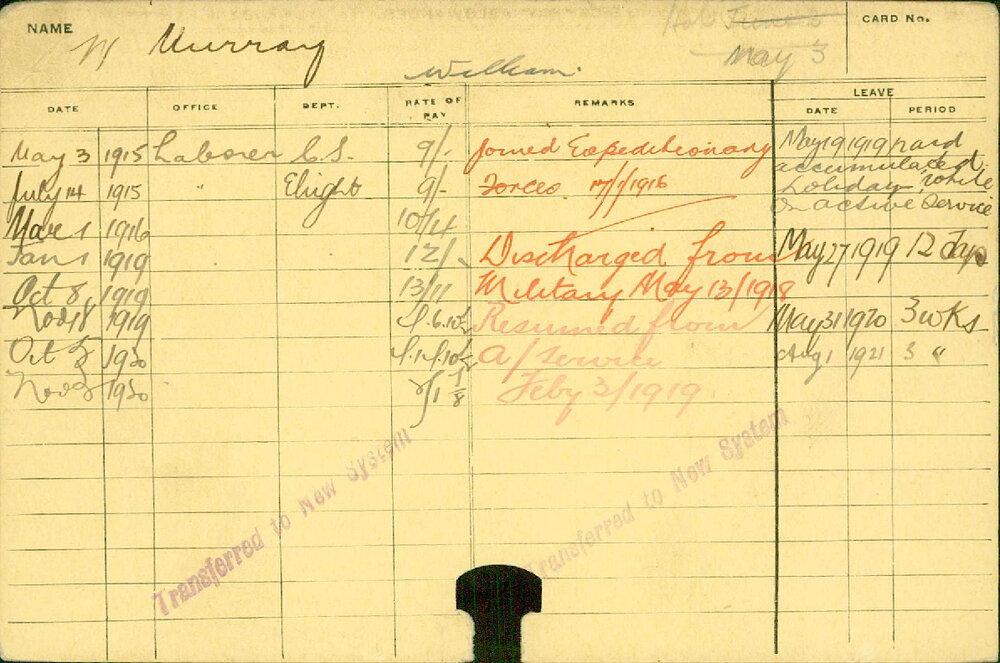 NAME W Murray
William
May 3
CARD No.
DATE OFFICE DEPT. RATE OF PAY REMARKS LEAVE
DATE PERIOD
May 3 1915 Laborer C.S. 9/- Joined Expeditionary May 19 1919 paid
accumulated
July 14 1915 " Elight 9/- Forces 17/1/1916 holiday while
on active service
Mar 1 1916 10/4
Jan 1 1919 12/- Discharged from May 27 1919 12 days
Oct 8, 1919 13/11 Military May 13/1919
Nov 18 1919 Resumed from May 31 1920 3 wks
Oct 1920 A/Service Aug 1 1921 3 "
Nov 1920 Feby 3/1919
Transferred to New System
Transferred to New System